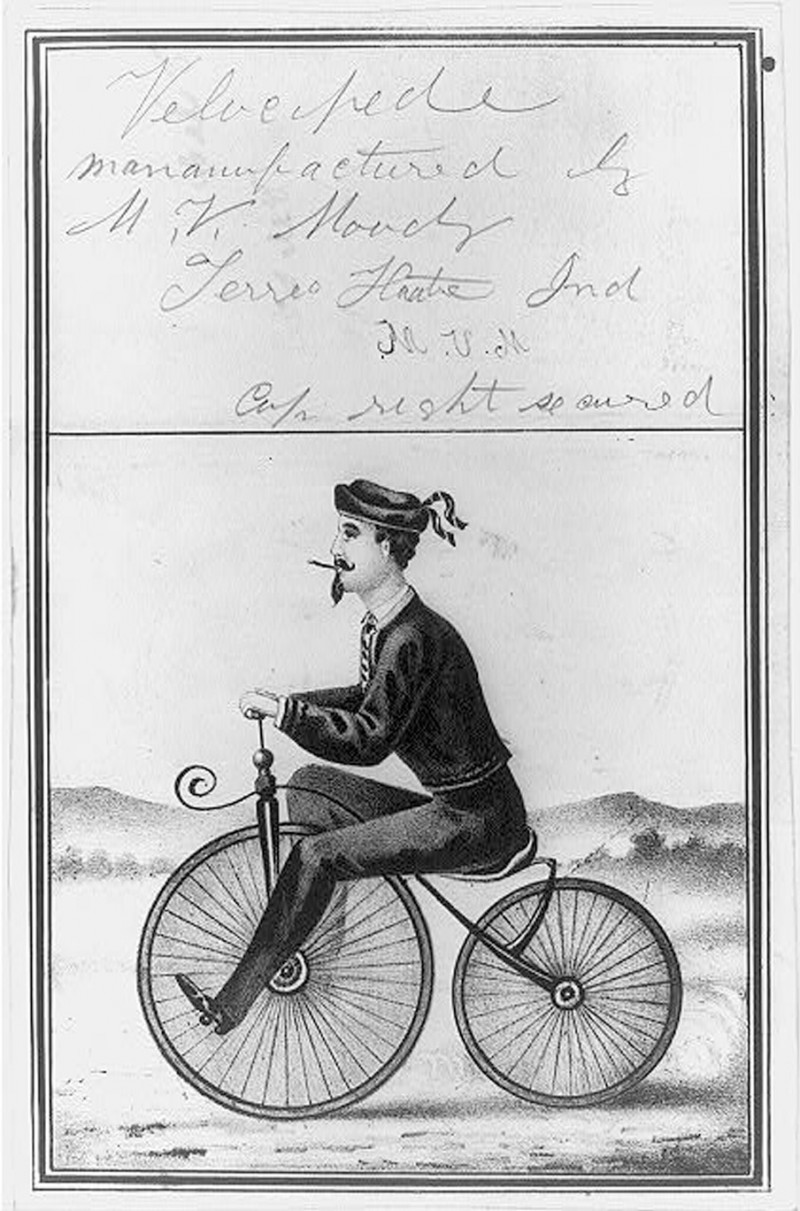 Velocipede
mananufactured by
M. V. Moody
Terreo Haute Ind
M. V. M.
Cop right secured